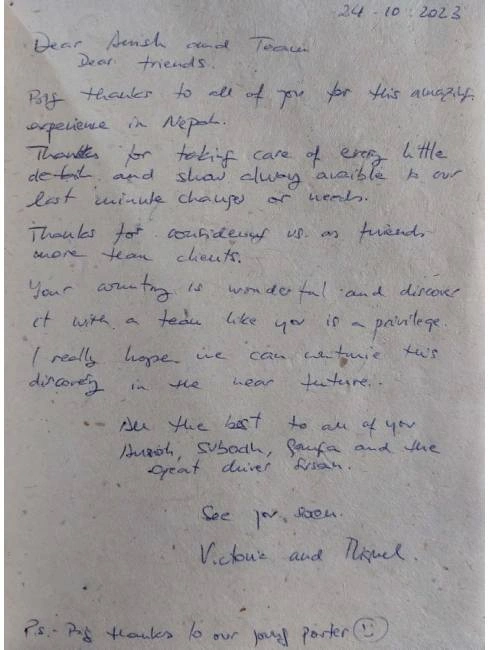 24-10-2023
Dear Anish and Team
Dear friends.
Big thanks to all of you for this amazing
experience in Nepal.
Thanks for taking care of every little
detail and show always avaible to our
last minute changes or needs.
Thanks for us as friends
more than clients.
Your country is wonderful and discover
it with a team like you is a privilege.
I really hope we can continue this
discovery in the near future..
All the best to all of you
Anish, Subodh, and the
great driver
See you soon.
Victoria and Miguel.
P.s.- Big thanks to our young porter ☺